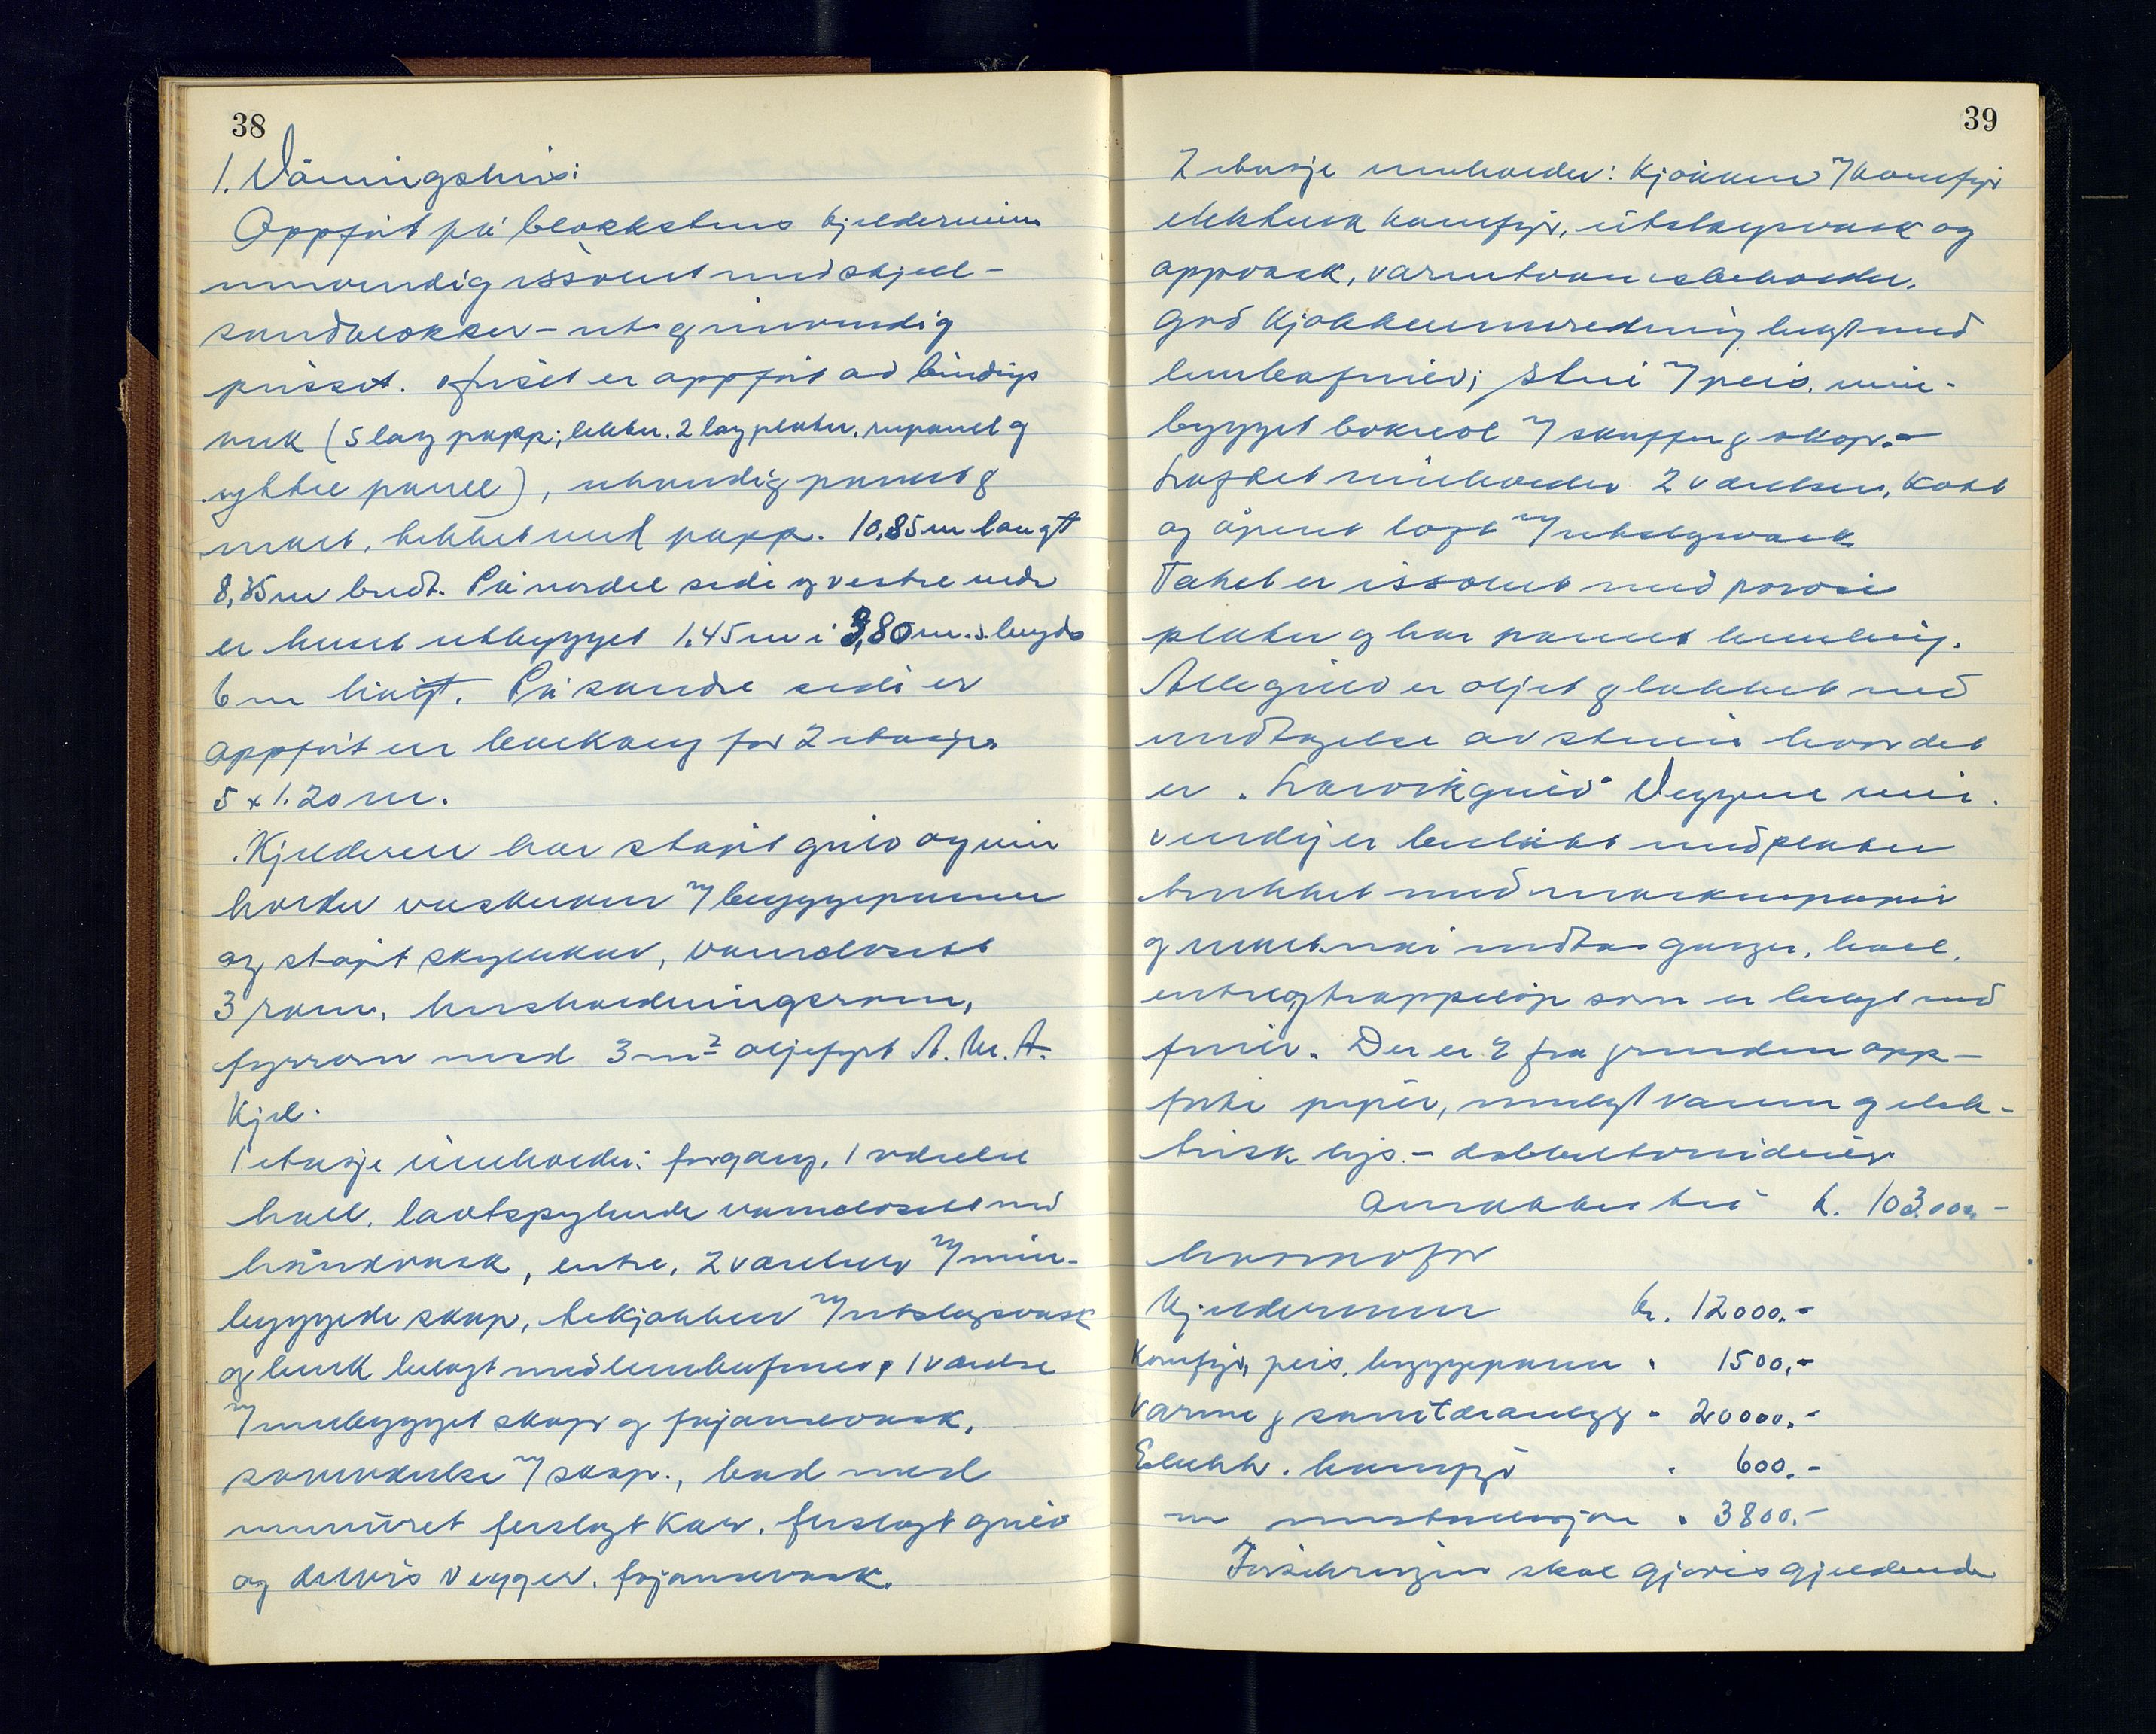 38
1. Våningshus:
Oppført på blokkstens kjeldermur
innvendig issolert med skjell-
sandblokker - ut- og innvendig
pusset. Huset er oppført av bindings
verk (5 lag papp; lekter. 2 lag plater. rupanel og
ytttre panel), utvendig panelt og
malt, tekket med papp. 10,85 m langt
8,35 m bredt. På nordre side og vestre ende
er huset utbygget 1.45 m i 3,80 m.s lengde
6 m høigt. På søndre side er
oppført en balkong for 2 etasje
5 x 1.20 m.
Kjelderen har støpt gulv og inne
holder vaskerum m/ bryggepanne
og støpt skyllekar, vannclosett
3 rom, husholdningsrom,
fyrrom med 3 m² oljefyrt
Kjel.
1 etasje inneholder: forgang, 1 værelse
hall, lavtspylende vannclosett med
håndvask, entre, 2 værelser m/ inn-
byggede skap, tekjøkken m/ utslagsvask
og benk belagt med 1 værelse
m/ innebygget skap og fajansevask,
soveværelse m/ skap., bad med
innmuret fliselagt kar. fliselagt gulv
og delvis vegger. fajansevask.
39
2 etasje inneholder: Kjøkken m/ komfyr
elektrisk komfyr, utslagsvask og
oppvask, varmtvannsbeholder.
God kjøkkeninnredning belagt med
stue m/ peis. inn-
bygget bokreol m/ skuffer og skap. -
Loftet inneholder 2 værelser, kott
og åpent loft m/ utslagsvask
Taket er issolert med porøse
plater og har panelt himling.
Alle gulv er oljet og lakkert med
undtagelse av stuen hvor det
er "Larvikgulv" Veggene inn-
vendig er beslått med plater
trukket med maskinpapir
og malt. undtas ganger, hall,
entre og trappeløp som er belagt med
finér. Der er 2 fra grunden opp-
førte piper, innlagt vann og elek-
trisk lys. - dobbelte vinduer
Omsatt til k. 103.000.-
hvorav for
Kjeldermur kr. 12000.-
Komfyr, peis, bryggepanne " 1500.-
Varme og sanitæranlegg " 20000.-
Elektr. komfyr " 600.-
" installasjon " 3800.-
Forsikringen skal gjøres gjeldende